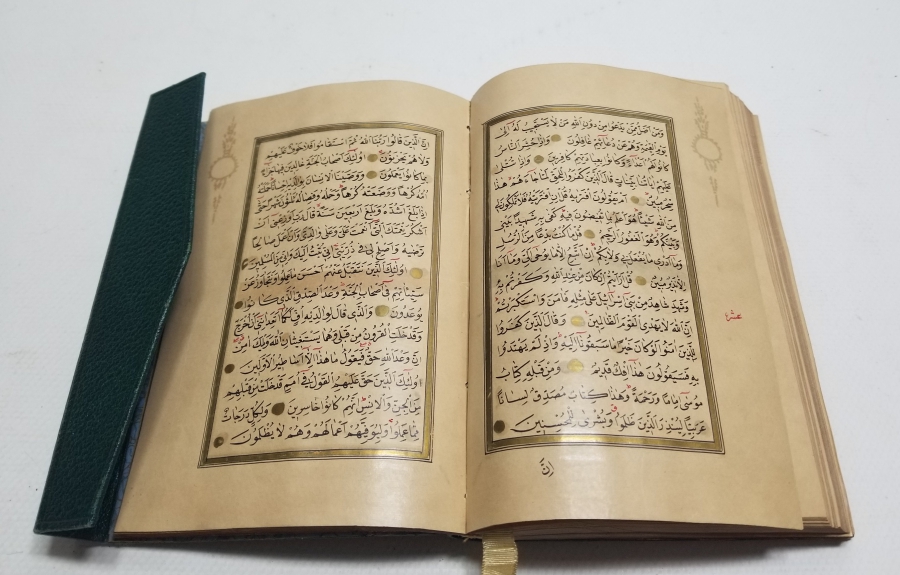 وَمَنْ اَضَلُّ مِمَّنْ يَدْعُوا مِنْ دُونِ اللّٰهِ مَنْ لَا يَسْتَجِيبُ لَهُ اِلٰى
يَوْمِ الْقِيٰمَةِ وَهُمْ عَنْ دُعَائِهِمْ غَافِلُونَ وَاِذَا حُشِرَ النَّاسُ
كَانُوا لَهُمْ اَعْدَاءً وَكَانُوا بِعِبَادَتِهِمْ كَافِرِينَ وَاِذَا تُتْلٰى
عَلَيْهِمْ اٰيَاتُنَا بَيِّنَاتٍ قَالَ الَّذِينَ كَفَرُوا لِلْحَقِّ لَمَّا جَاءَهُمْ هٰذَا
سِحْرٌ مُبِينٌ اَمْ يَقُولُونَ افْتَرٰيهُ قُلْ اِنِ افْتَرَيْتُهُ فَلَا تَمْلِكُونَ لِي
مِنَ اللّٰهِ شَيْئًا هُوَ اَعْلَمُ بِمَا تُفِيضُونَ فِيهِ كَفٰى بِهِ شَهِيدًا بَيْنِي
وَبَيْنَكُمْ وَهُوَ الْغَفُورُ الرَّحِيمُ قُلْ مَا كُنْتُ بِدْعًا مِنَ الرُّسُلِ
وَمَا اَدْرِي مَا يُفْعَلُ بِي وَلَا بِكُمْ اِنْ اَتَّبِعُ اِلَّا مَا يُوحٰى اِلَيَّ وَمَا اَنَا
اِلَّا نَذِيرٌ مُبِينٌ قُلْ اَرَاَيْتُمْ اِنْ كَانَ مِنْ عِنْدِ اللّٰهِ وَكَفَرْتُمْ بِهِ
وَشَهِدَ شَاهِدٌ مِنْ بَنِي اِسْرَائِلَ عَلٰى مِثْلِهِ فَاٰمَنَ وَاسْتَكْبَرْتُمْ
اِنَّ اللّٰهَ لَا يَهْدِي الْقَوْمَ الظَّالِمِينَ وَقَالَ الَّذِينَ كَفَرُوا
لِلَّذِينَ اٰمَنُوا لَوْ كَانَ خَيْرًا مَا سَبَقُونَا اِلَيْهِ وَاِذْ لَمْ يَهْتَدُوا
بِهِ فَسَيَقُولُونَ هٰذَا اِفْكٌ قَدِيمٌ وَمِنْ قَبْلِهِ كِتَابُ
مُوسٰى اِمَامًا وَرَحْمَةً وَهٰذَا كِتَابٌ مُصَدِّقٌ لِسَانًا
عَرَبِيًّا لِيُنْذِرَ الَّذِينَ ظَلَمُوا وَبُشْرٰى لِلْمُحْسِنِينَ
اِنَّ
عشر
اِنَّ الَّذِينَ قَالُوا رَبُّنَا اللّٰهُ ثُمَّ اسْتَقَامُوا فَلَا خَوْفٌ عَلَيْهِمْ
وَلَا هُمْ يَحْزَنُونَ اُولٰئِكَ اَصْحَابُ الْجَنَّةِ خَالِدِينَ فِيهَا جَزَاءً
بِمَا كَانُوا يَعْمَلُونَ وَوَصَّيْنَا الْاِنْسَانَ بِوَالِدَيْهِ اِحْسَانًا حَمَلَتْهُ
اُمُّهُ كُرْهًا وَوَضَعَتْهُ كُرْهًا وَحَمْلُهُ وَفِصَالُهُ ثَلٰثُونَ شَهْرًا حَتّٰى
اِذَا بَلَغَ اَشُدَّهُ وَبَلَغَ اَرْبَعِينَ سَنَةً قَالَ رَبِّ اَوْزِعْنِي اَنْ
اَشْكُرَ نِعْمَتَكَ الَّتِي اَنْعَمْتَ عَلَيَّ وَعَلٰى وَالِدَيَّ وَاَنْ اَعْمَلَ صَالِحًا
تَرْضٰيهُ وَاَصْلِحْ لِي فِي ذُرِّيَّتِي اِنِّي تُبْتُ اِلَيْكَ وَاِنِّي مِنَ الْمُسْلِمِينَ
اُولٰئِكَ الَّذِينَ نَتَقَبَّلُ عَنْهُمْ اَحْسَنَ مَا عَمِلُوا وَنَتَجَاوَزُ عَنْ
سَيِّئَاتِهِمْ فِي اَصْحَابِ الْجَنَّةِ وَعْدَ الصِّدْقِ الَّذِي كَانُوا
يُوعَدُونَ وَالَّذِي قَالَ لِوَالِدَيْهِ اُفٍّ لَكُمَا اَتَعِدَانِنِي اَنْ اُخْرَجَ
وَقَدْ خَلَتِ الْقُرُونُ مِنْ قَبْلِي وَهُمَا يَسْتَغِيثَانِ اللّٰهَ وَيْلَكَ اٰمِنْ
اِنَّ وَعْدَ اللّٰهِ حَقٌّ فَيَقُولُ مَا هٰذَا اِلَّا اَسَاطِيرُ الْاَوَّلِينَ
اُولٰئِكَ الَّذِينَ حَقَّ عَلَيْهِمُ الْقَوْلُ فِي اُمَمٍ قَدْ خَلَتْ مِنْ قَبْلِهِمْ
مِنَ الْجِنِّ وَالْاِنْسِ اِنَّهُمْ كَانُوا خَاسِرِينَ وَلِكُلٍّ دَرَجَاتٌ
مِمَّا عَمِلُوا وَلِيُوَفِّيَهُمْ اَعْمَالَهُمْ وَهُمْ لَا يُظْلَمُونَ